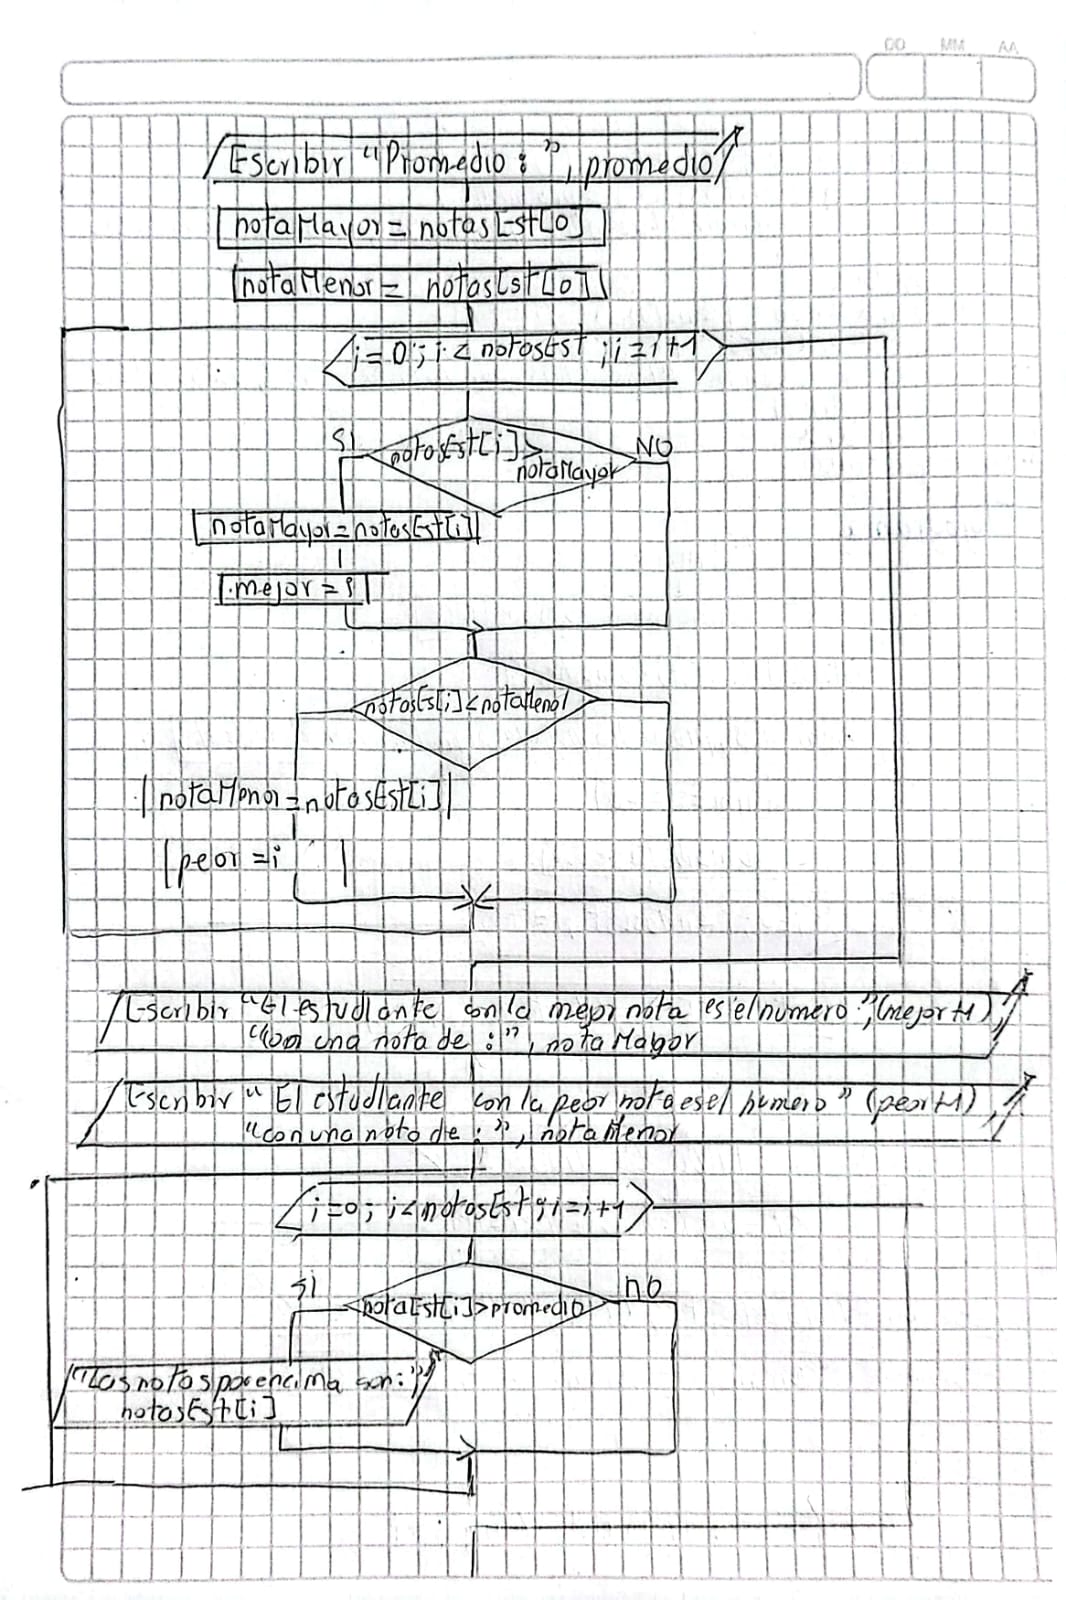 DD MM AA
Escribir "Promedio: ", promedio
notaMayor = notasEst[0]
notaMenor = notasEst[0]
i=0; i < notasEst ; i=i+1
SI
notasEst[i]>
NO
notaMayor
notaMayor=notasEst[i]
mejor = i
notasEs[i]<notaMenor
notaMenor=notasEst[i]
peor =i
Escribir "El estudiante con la mejor nota es el numero",(mejor+1),
"con una nota de :", notaMayor
Escribir "El estudiante con la peor nota es el numero" (peor+1),
"con una nota de :", notaMenor
i=0; i<notasEst; i=i+1
SI
notaEst[i]>promedio
NO
"Las notas por encima son:"
notasEst[i]